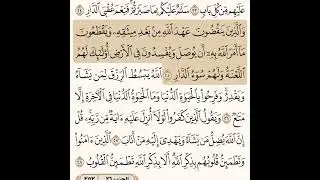 عَلَيْهِم مِّن كُلِّ بَابٍ ٢٣ سَلَٰمٌ عَلَيْكُم بِمَا صَبَرْتُمْ فَنِعْمَ عُقْبَى ٱلدَّارِ ٢٤
وَٱلَّذِينَ يَنقُضُونَ عَهْدَ ٱللَّهِ مِنۢ بَعْدِ مِيثَٰقِهِۦ وَيَقْطَعُونَ
مَآ أَمَرَ ٱللَّهُ بِهِۦٓ أَن يُوصَلَ وَيُفْسِدُونَ فِى ٱلْأَرْضِ أُو۟لَٰٓئِكَ لَهُمُ
ٱللَّعْنَةُ وَلَهُمْ سُوٓءُ ٱلدَّارِ ٢٥ ٱللَّهُ يَبْسُطُ ٱلرِّزْقَ لِمَن يَشَآءُ
وَيَقْدِرُ وَفَرِحُوا۟ بِٱلْحَيَوٰةِ ٱلدُّنْيَا وَمَا ٱلْحَيَوٰةُ ٱلدُّنْيَا فِى ٱلْءَاخِرَةِ إِلَّا
مَتَٰعٌ ٢٦ وَيَقُولُ ٱلَّذِينَ كَفَرُوا۟ لَوْلَآ أُنزِلَ عَلَيْهِ ءَايَةٌ مِّن رَّبِّهِۦ قُلْ
إِنَّ ٱللَّهَ يُضِلُّ مَن يَشَآءُ وَيَهْدِىٓ إِلَيْهِ مَنْ أَنَابَ ٢٧ ٱلَّذِينَ ءَامَنُوا۟
وَتَطْمَئِنُّ قُلُوبُهُم بِذِكْرِ ٱللَّهِ أَلَا بِذِكْرِ ٱللَّهِ تَطْمَئِنُّ ٱلْقُلُوبُ ٢٨
الحزب ٢٦ ٢٥٢